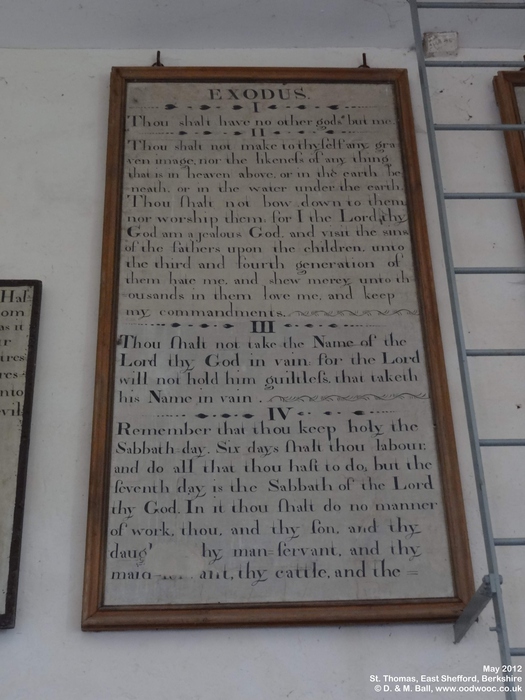 EXODUS.
I
Thou shalt have no other gods but me.
II
Thou shalt not make to thyself any gra
ven image, nor the likeness of any thing
that is in heaven above, or in the earth be
neath, or in the water under the earth.
Thou shalt not bow down to them
nor worship them, for I the Lord thy
God am a jealous God, and visit the sins
of the fathers upon the children, unto
the third and fourth generation of
them hate me, and shew mercy unto th
ousands in them love me, and keep
my commandments.
III
Thou shalt not take the Name of the
Lord thy God in vain: for the Lord
will not hold him guiltless, that taketh
his Name in vain.
IV
Remember that thou keep holy the
Sabbath day. Six days shalt thou labour,
and do all that thou hast to do, but the
seventh day is the Sabbath of the Lord
thy God. In it thou shalt do no manner
of work, thou, and thy son, and thy
daug hy man=servant, and thy
maid ant, thy cattle, and the =
Haf
om
as it
r
tres
res
nto
vil
May 2012
St. Thomas, East Shefford, Berkshire
© D. & M. Ball, www.oodwooc.co.uk